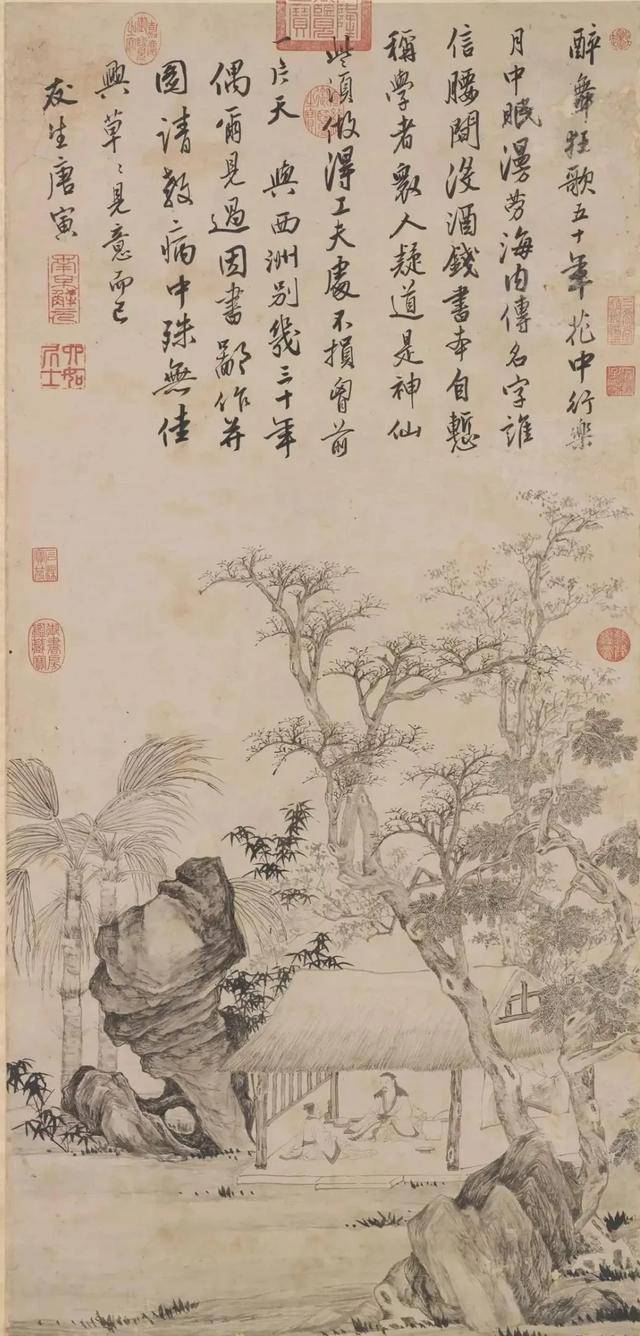 醉舞狂歌五十年花中行樂
月中眠漫勞海內傳名字誰
信腰間沒酒錢書本自慙
稱學者眾人疑道是神仙
些須做得工夫處不損胷前
一片天　與西洲別幾三十年
偶爾見過因書鄙作并
圖請教病中殊無佳
興草〻見意而已
友生唐寅
南京解元
六如居士
御書房鑑藏寶